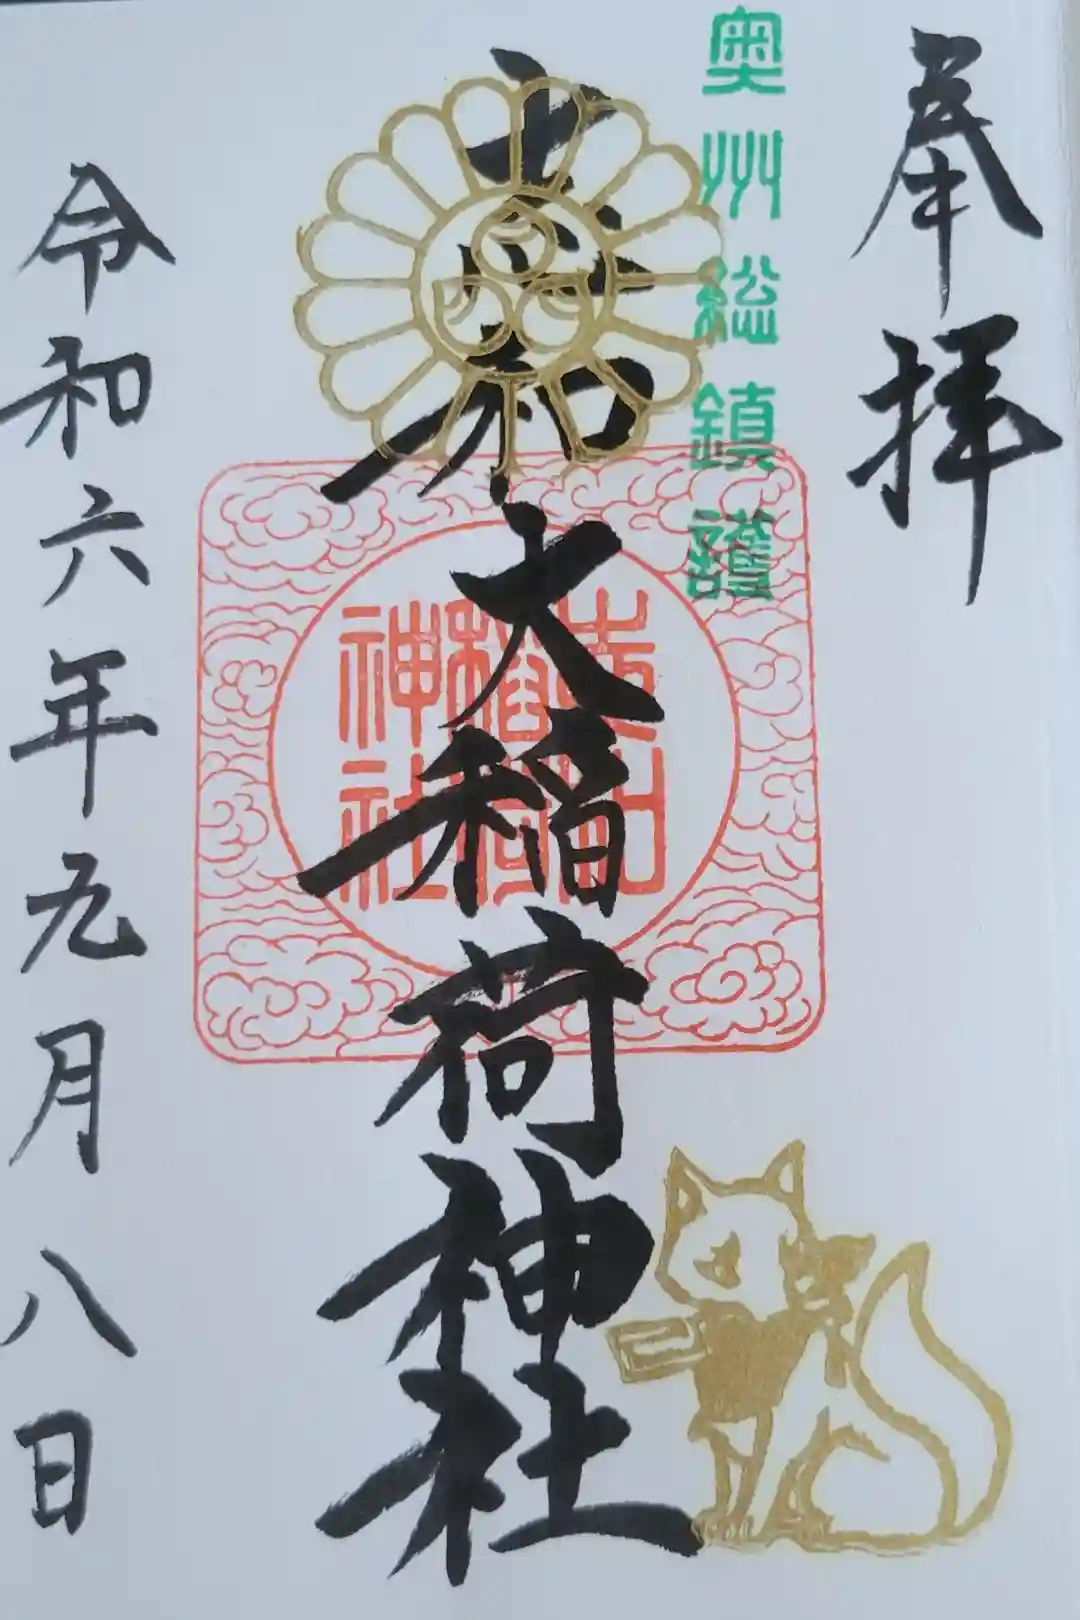 奉拝
奥州総鎮護
志和大稲荷神社
志和
稲荷
神社
令和六年九月八日